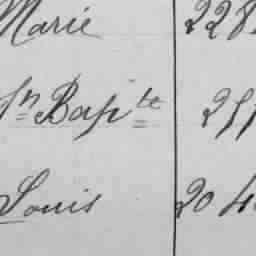 Marie 228
Jn Bapte 251
Louis 20 4